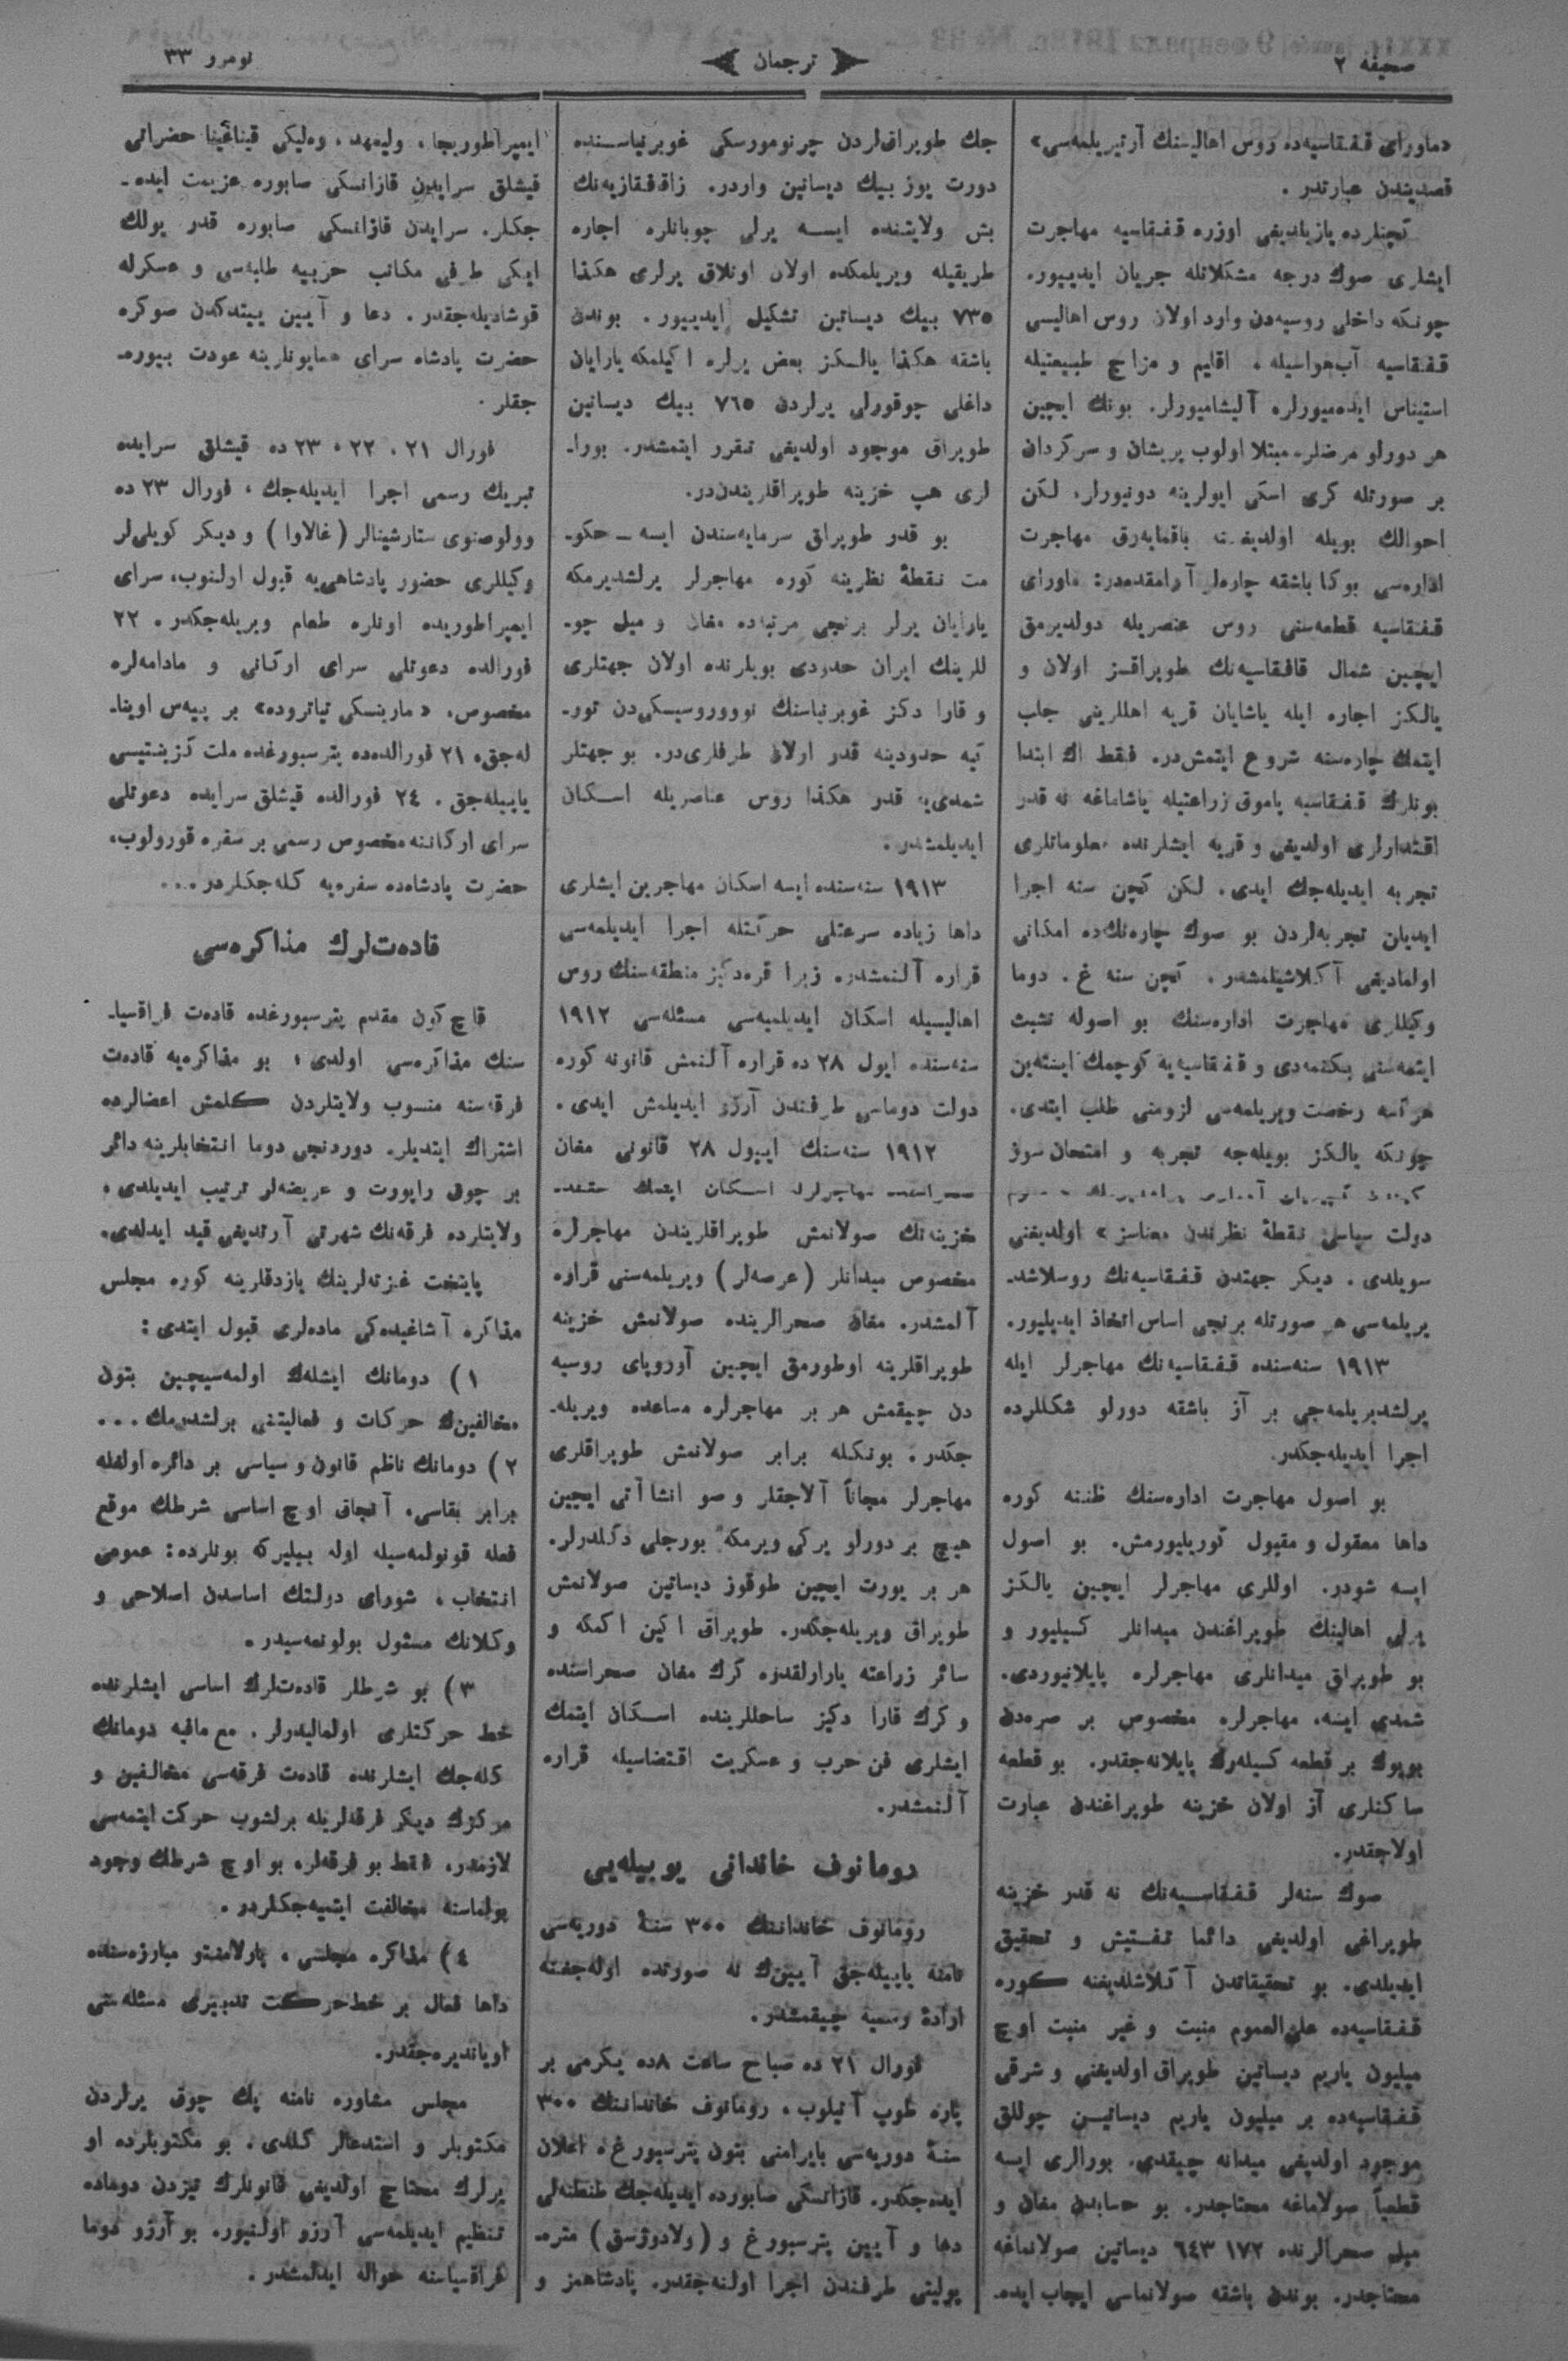 صحیفه ٢
ترجمان
نومرو ٣٣
«ماورای قفقاسیه‌ده روس اهالیسنك آرتیریلمه‌سی»
قصدیندن عبارتدر .
كچنلرده یازیلدیغی اوزره قفقاسیه مهاجرت
ایشلری صوك درجه مشكلاتله جریان ایدییور.
چونكه داخلی روسیه‌دن وارد اولان روس اهالیسی
قفقاسیه آب هواسیله ، اقلیم و مزاج طبیعتیله
استیناس ایده‌میورلره آلیشامیورلر. بونك ایچین
هر دورلو مرضلره مبتلا اولوب پریشان و سركردان
بر صورتله كری اسكی ایولرینه دونیورلر. لكن
احوالك بویله اولدیغنه باقمایه‌رق مهاجرت
اداره‌سی بوكا باشقه چاره‌لر آرامقده‌در: ماورای
قفقاسیه قطعه‌سنی روس عنصریله دولدیرمق
ایچین شمال قافقاسیه‌نك طوپراقسز اولان و
یالكز اجاره ایله یاشایان قریه اهللرینی جلب
ایتمك چاره‌سنه شروع ایتمش‌در. فقط اك ابتدا
بونلرك قفقاسیه پاموق زراعتیله یاشاماغه نه قدر
اقتدارلری اولدیغی و قریه ایشلرنده معلوماتلری
تجربه ایدیله‌جك ایدی. لكن كچن سنه اجرا
ایدیلن تجربه‌لردن بو صوك چاره‌نك‌ده امكانی
اولمادیغی آكلاشیلمشدر. كچن سنه غ. دوما
وكیللری مهاجرت اداره‌سنك بو اصوله تشبث
ایتمه‌سنی بكنمه‌دی و قفقاسیه‌یه كوچمك ایسته‌ین
هر كسه رخصت ویریلمه‌سی لزومنی طلب ایتدی.
چونكه یالكز بویله‌جه تجربه و امتحان سوق
دولت سیاسی نقطهٔ نظرندن معناسز» اولدیغنی
سویلدی . دیكر جهتدن قفقاسیه‌نك روسلاشد-
یریلمه‌سی هر صورتله برنجی اساس اتخاذ ایدیلیور.
١٩١٣ سنه‌سنده قفقاسیه‌نك مهاجرلر ایله
یرلشدیریلمه‌جی بر آز باشقه دورلو شكللرده
اجرا ایدیله‌جكدر.
بو اصول مهاجرت اداره‌سنك ظننه كوره
داها معقول و مقبول كوریلیورمش. بو اصول
ایسه شودر. اوللری مهاجرلر ایچین یالكز
یرلی اهالینك طوپراغندن میدانلر كسیلیور و
بو طوپراق میدانلری مهاجرلره پایلانیوردی.
شمدی ایسه، مهاجرلره مخصوص بر صره‌دن
بویوك بر قطعه كسیله‌رك پایلانه‌جقدر. بو قطعه
ساكنلری آز اولان خزینه طوپراغندن عبارت
اولاجقدر.
صوك سنه‌لر قفقاسیه‌نك نه قدر خزینه
طوپراغی اولدیغی دائما تفتیش و تحقیق
ایدیلدی. بو تحقیقاتدن آكلاشلدیغنه كوره
قفقاسیه‌ده علی‌العموم منبت و غیر منبت اوچ
میلیون یاریم دیساتین طوپراق اولدیغنی و شرقی
قفقاسیه‌ده بر میلیون یاریم دیساتین چوللق
موجود اولدیغی میدانه چیقدی. بورالری ایسه
قطعیاً صولاماغه محتاجدر. بو حسابدن مغان و
میل صحرالرنده ١٧٢ ٦٤٣ دیساتین صولانماغه
محتاجدر. بوندن باشقه صولانماسی ایجاب ایده-
جك طوپراق‌لردن چرنومورسكی غوبرنیاسنده
دورت یوز بیك دیساتین واردر. زاقفقازیه‌نك
بش ولایتنده ایسه یرلی چوبانلره اجاره
طریقیله ویریلمكده اولان اوتلاق یرلری هكذا
٧٣٥ بیك دیساتین تشكیل ایدییور. بوندن
باشقه هكذا یالكز بعض یرلره اكیلمكه یارایان
داغلی چوقورلی یرلردن ٧٦٥ بیك دیساتین
طوپراق موجود اولدیغی تقرر ایتمشدر. بورا-
لری هپ خزینه طوپراقلریندن‌در.
بو قدر طوپراق سرمایه‌سندن ایسه — حكو-
مت نقطهٔ نظرینه كوره مهاجرلر یرلشدیرمكه
یارایان یرلر برنجی مرتبه‌ده مغان و میل چو-
للرینك ایران حدودی بویلرنده اولان جهتلری
و قارا دكز غوبرنیاسنك نووروسیسكی‌دن تور-
كیه حدودینه قدر اولان طرفلری‌در. بو جهتلر
شمدی‌یه قدر هكذا روس عناصریله اسكان
ایدیلمشدر.
١٩١٣ سنه‌سنده ایسه اسكان مهاجرین ایشلری
داها زیاده سرعتلی حركتله اجرا ایدیلمه‌سی
قراره آلنمشدر. زیرا قره‌دكیز منطقه‌سنك روس
اهالیسیله اسكان ایدیلمیه‌سی مسئله‌سی ١٩١٢
سنه‌سنده ایول ٢٨ ده قراره آلنمش قانونه كوره
دولت دوماسی طرفندن آرزو ایدیلمش ایدی.
١٩١٢ سنه‌سنك ایپول ٢٨ قانونی مغان
خزینه‌نك صولانمش طوپراقلریندن مهاجرلره
مخصوص میدانلر (عرصه‌لر) ویریلمه‌سنی قراره
آلمشدر. مغان صحرالرینده صولانمش خزینه
طوپراقلرینه اوطورمق ایچین آوروپای روسیه
دن چیقمش هر بر مهاجرلره مساعده ویریله-
جكدر. بونكله برابر صولانمش طوپراقلری
مهاجرلر مجاناً آلاجقلر و صو انشاآتی ایچین
هیچ بر دورلو یركی ویرمكه بورجلی دكلدرلر.
هر بر یورت ایچین طوقوز دیساتین صولانمش
طوپراق ویریله‌جكدر. طوپراق اكین اكمكه و
سائر زراعته یارارلقدره كرك مغان صحراسنده
و كرك قارا دكیز ساحللرینده اسكان ایتمك
ایشلری فن حرب و عسكریت اقتضاسیله قراره
آلنمشدر.
رومانوف خاندانی یوبیله‌یی
رومانوف خانداننك ٣٠٠ سنهٔ دوریه‌سی
نامنه یاپیله‌جق آیینك نه صورتده اوله‌جغنه
ارادهٔ رسمیه چیقمشدر.
فورال ٢١ ده صباح ساعت ٨ده یكرمی بر
پاره طوپ آتیلوب، رومانوف خاندانیك ٣٠٠
سنهٔ دوریه‌سی بایرامنی بتون پترسبورغ‌ه اعلان
ایده‌جكدر. قازانسكی صابورده ایدیله‌جك طنطنه‌لی
دعا و آیین پترسبورغ و (ولادوژسق) متره-
پولیتی طرفندن اجرا اولنه‌جقدر. پادشاهمز و
ایمپراطوریچا، ولیعهد، وه‌لیكی قینانچینا حضراتی
قیشلق سرایدین قازانسكی صابوره عزیمت ایده-
جكلر. سرایدن قازانسكی صابوره قدر یولك
ایكی طرفی مكاتب حربیه طلبه‌سی و عسكرله
قوشادیله‌جقدر. دعا و آیین بیتدكدن صوكره
حضرت پادشاه سرای همایونلرینه عودت بیوره-
جقلر.
فورال ٢١، ٢٢، ٢٣ ده قیشلق سرایده
تبریك رسمی اجرا ایدیله‌جك، فورال ٢٣ ده
وولوصنوی ستارشینالر (غالاوا) و دیكر كویلی‌لر
وكیللری حضور پادشاهی‌یه قبول اولنوب، سرای
ایمپراطوریده اونلره طعام ویریله‌جكدر. ٢٢
فورالده دعوتلی سرای اركانی و مادامه‌لره
مخصوص، «مارینسكی تیاتروده» بر پیه‌س اوینا-
له‌جق، ٢١ فورالده‌ده پترسبورغده ملت كزینتیسی
یاپیله‌جق. ٢٤ فورالده قیشلق سرایده دعوتلی
سرای اركاننه مخصوص رسمی بر سفره قورولوب،
حضرت پادشاه‌ده سفره‌یه كله‌جكلردر...
قاده‌ت‌لرك مذاكره‌سی
قاچ كون مقدم پترسبورغده قاده‌ت فراقسیا-
سنك مذاكره‌سی اولدی؛ بو مذاكره‌یه قاده‌ت
فرقه‌سنه منسوب ولایتلردن كلمش اعضالرده
اشتراك ایتدیلر. دوردنجی دوما انتخابلرینه دائر
بر چوق راپورت و عریضه‌لر ترتیب ایدیلدی.
ولایتلرده فرقه‌نك شهرتی آرتدیغی قید ایدلدی.
پایتخت غزته‌لرینك یازدقلرینه كوره مجلس
مذاكره آشاغیده‌كی ماده‌لری قبول ایتدی:
١) دومانك ایشله‌ك اولمه‌سیچین بتون
مخالفین‌ك حركات و فعالیتنی برلشدیرمك...
٢) دومانك ناظم قانون و سیاسی بر دائره اولمغله
برابر بقاسی. آنجاق اوچ اساسی شرطك موقع
فعله قونولمه‌سیله اوله بیلیركه بونلرده: عمومی
انتخاب، شورای دولتك اساسدن اسلاحی و
وكلانك مسئول بولونمه‌سیدر.
٣) بو شرطلر قاده‌تلرك اساسی ایشلرنده
خط حركتلری اولمالیدرلر. مع مافیه دومانك
كله‌جك ایشلرنده قاده‌ت فرقه‌سی مخالفین و
مركزك دیكر فرقه‌لریله برلشوب حركت ایتمه‌سی
لازمدر، فقط بو فرقه‌لر، بو اوچ شرطك وجود
بولماسنه مخالفت ایتمیه‌جكلردر.
٤) مذاكره مجلسی، پارلامنتو مبارزه‌سنده
داها فعال بر خط‌حركت تدبیری مسئله‌سنی
اویاندیره‌جقدر.
مجلس مشاوره نامنه پك چوق یرلردن
مكتوبلر و استدعالر كلدی. بو مكتوبلرده او
یرلرك محتاج اولدیغی قانونلرك تیزدن دوماده
تنظیم ایدیلمه‌سی آرزو اولنیور. بو آرزو دوما
فراقسیاسنه حواله ایدلمشدر.